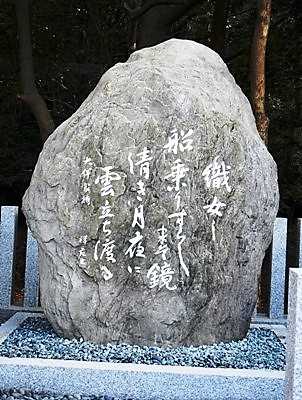 織女し
船乗りすらし
まそ鏡
清き月夜に
雲立ち渡る
大伴家持